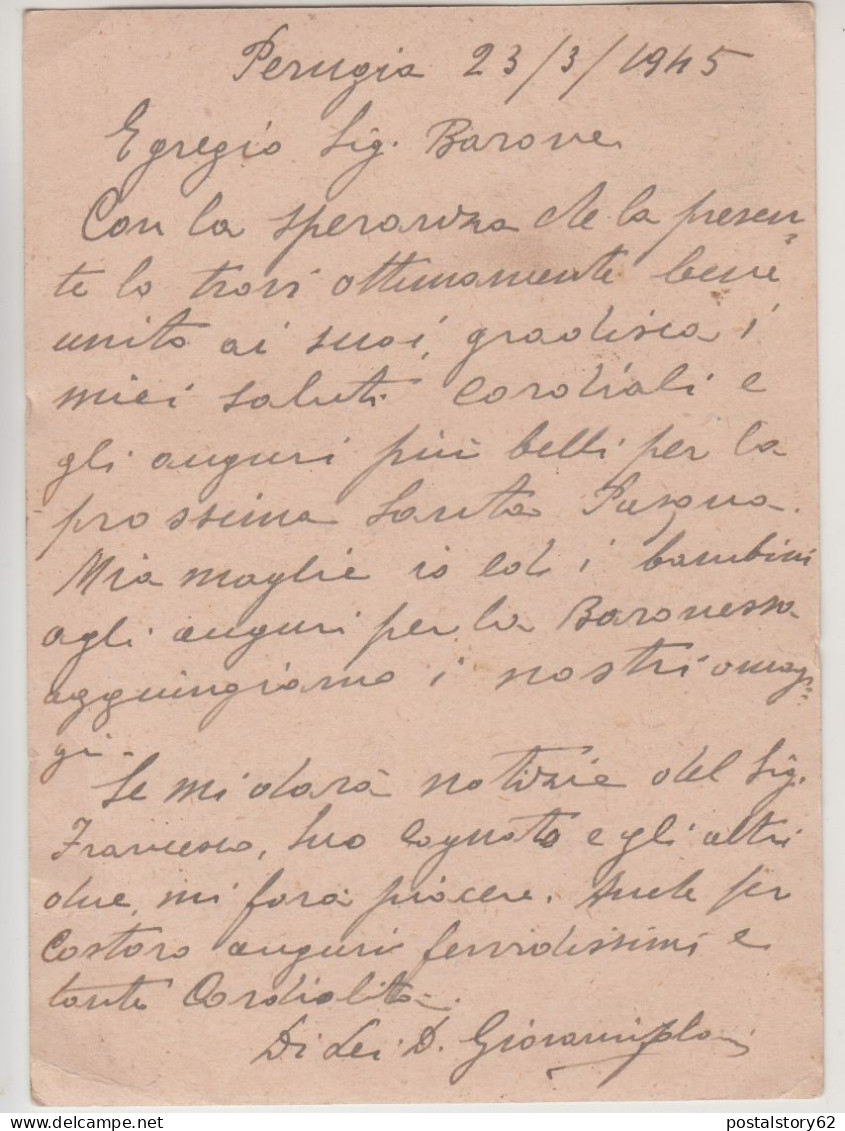 Perugia 23/3/1945
Egregio Sig. Barone
Con la speranza che la presen=
te la trovi ottimamente bene
unito ai suoi, gradisca i
miei saluti cordiali e
gli auguri più belli per la
prossima Santa Pasqua.
Mia moglie io ed i bambini
agli auguri per la Baronessa
aggiungiamo i nostri omag=
gi.
Se mi darà notizie del Sig.
Francesco, Suo Cognato e gli altri
due, mi farà piacere. Anche per
Costoro auguri fervidissimi e
tante Cordialità.
Di Lei D. Giovanni
postalstory62